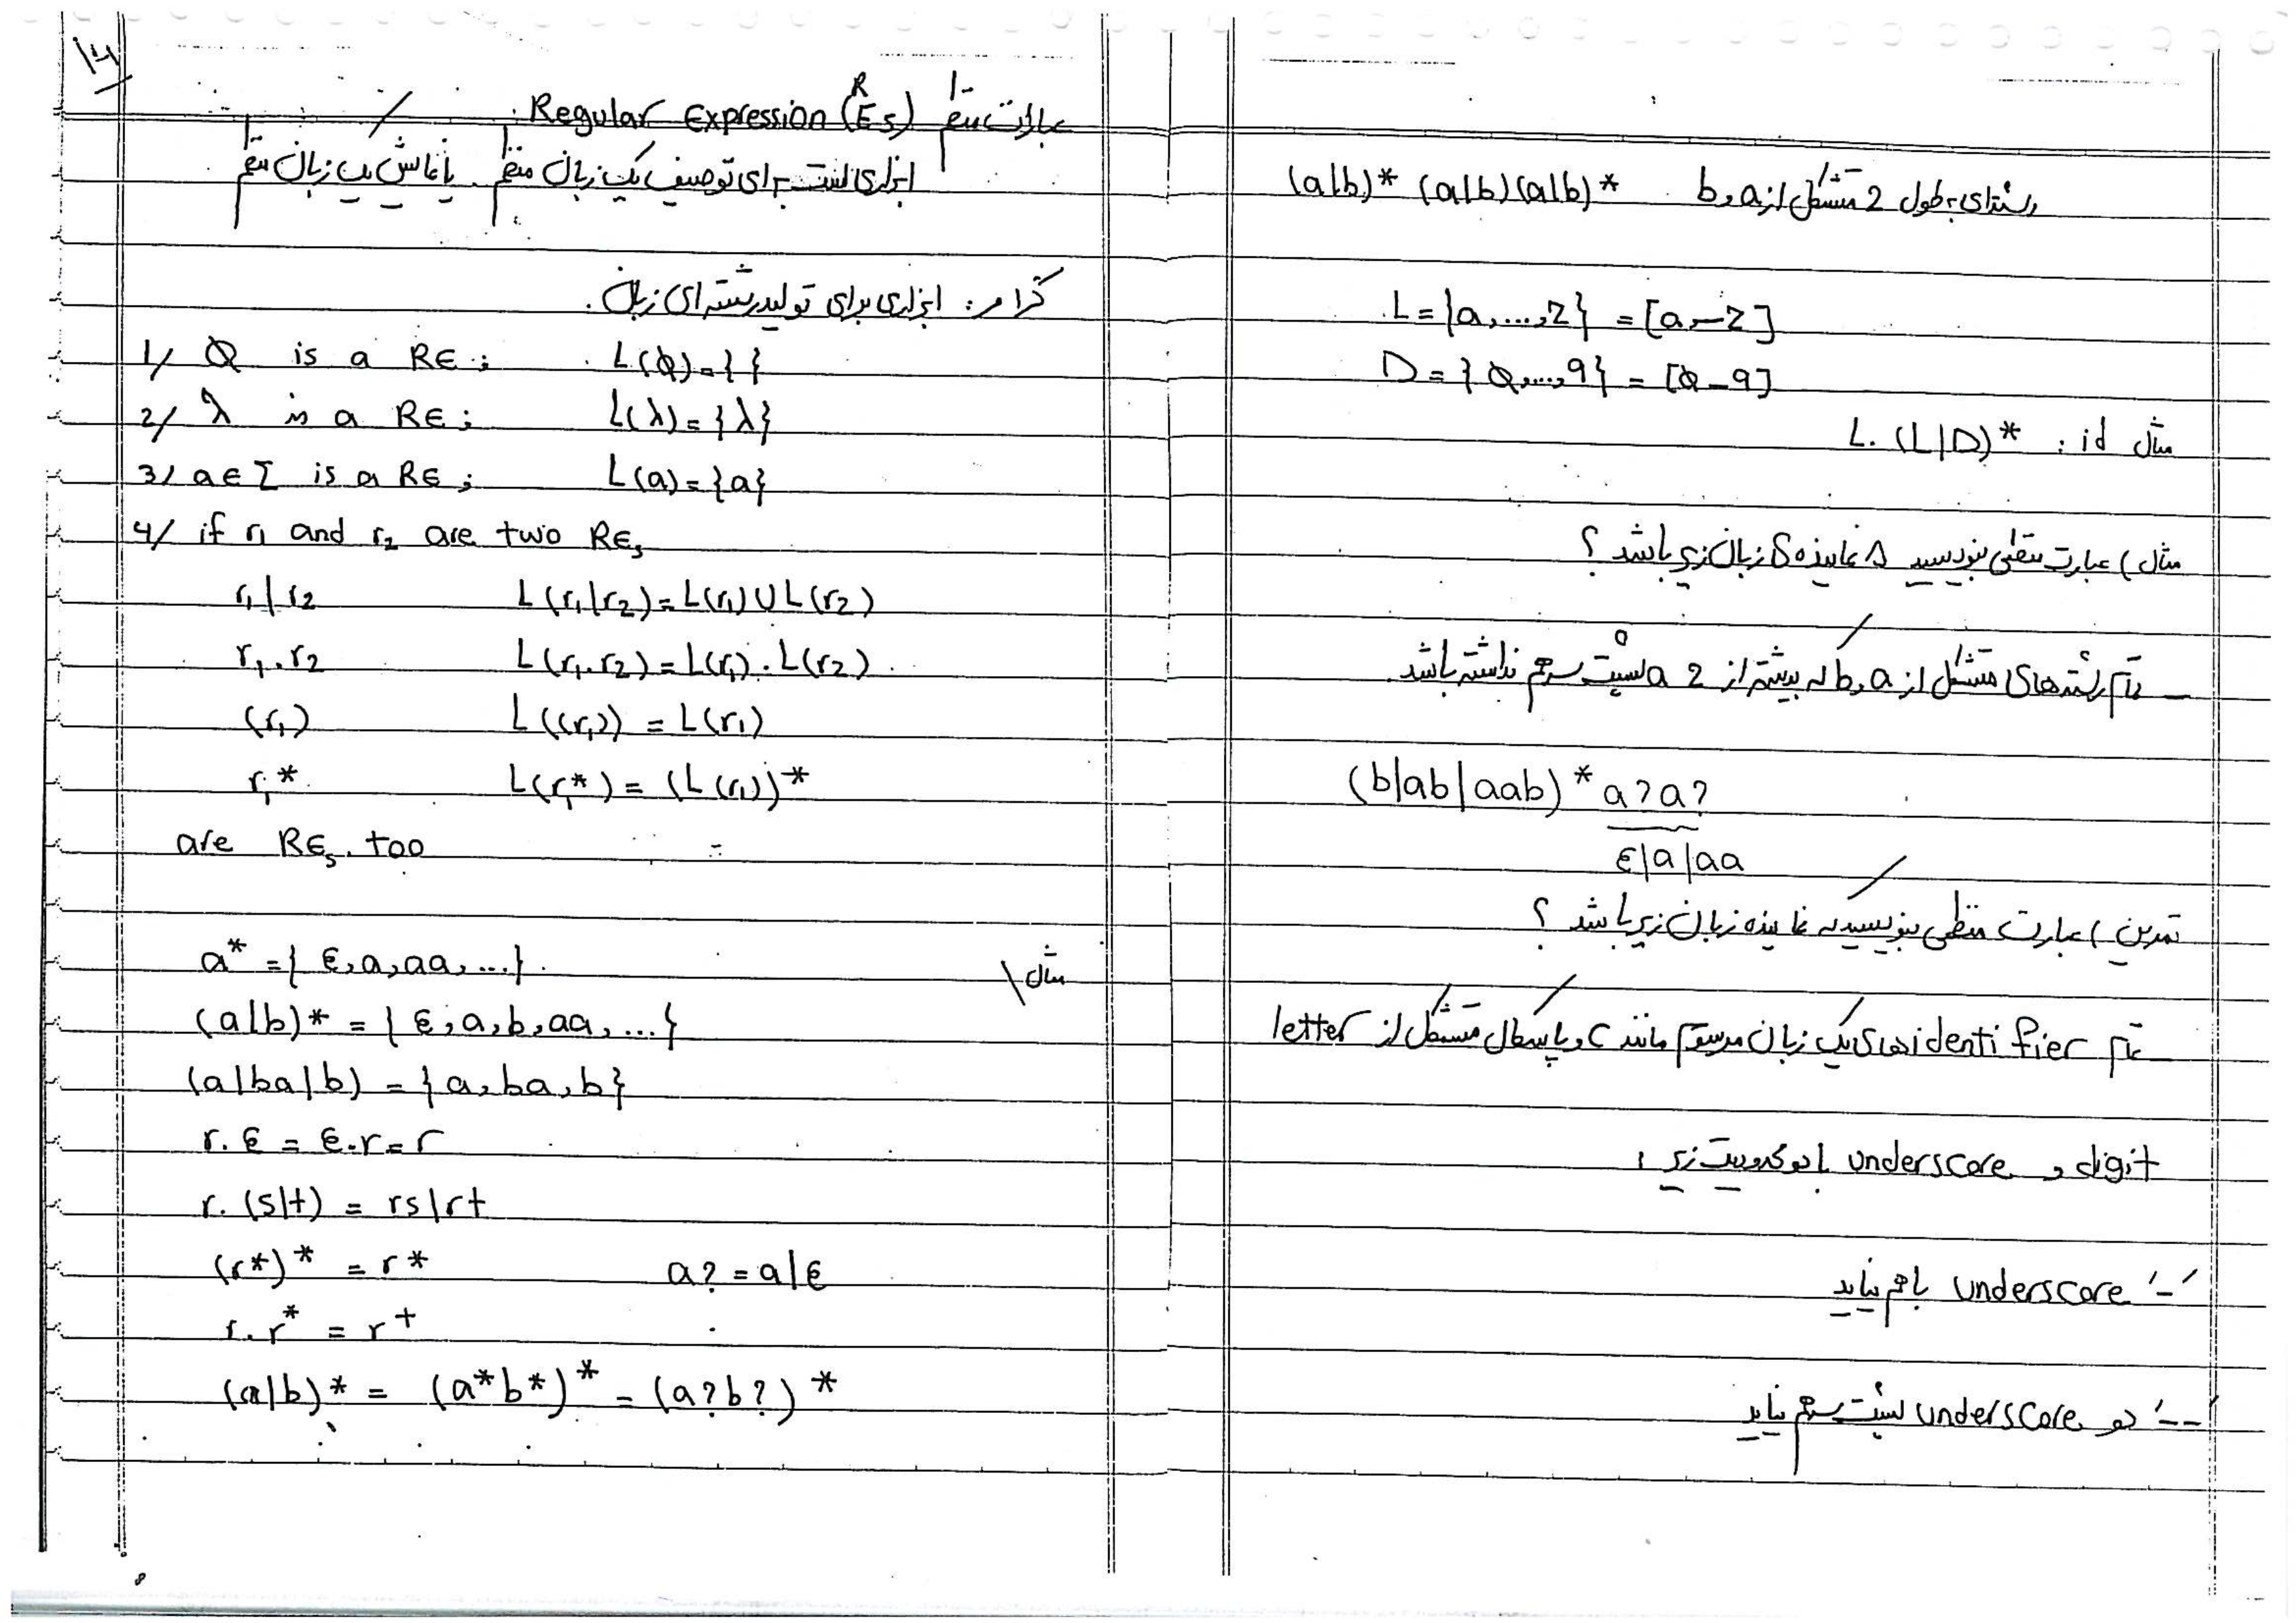 ۱۴
عبارات منظم Regular Expression (REs) :
ابزاری است برای توصیف یک زبان منظم. یا نمایش یک زبان منظم
گرامر: ابزاری برای تولید رشته ای زبان.
1/ Ø is a RE ; L(Ø)={ }
2/ λ is a RE ; L(λ)={λ}
3/ a∈Σ is a RE ; L(a)={a}
4/ if r₁ and r₂ are two REs
r₁|r₂ L(r₁|r₂)=L(r₁)∪L(r₂)
r₁.r₂ L(r₁.r₂)=L(r₁).L(r₂)
(r₁) L((r₁))=L(r₁)
r₁* L(r₁*)=(L(r₁))*
are REs too
مثال\ a*={ε,a,aa,...}
(a|b)*={ε,a,b,aa,...}
(a|ba|b)={a,ba,b}
r.ε=ε.r=r
r.(s|t)=rs|rt
(r*)*=r* a?=a|ε
r.r*=r+
(a|b)*=(a*b*)*=(a?b?)*
رشته‌ای به طول 2 متشکل از a و b (a|b)* (a|b)(a|b)*
L={a,...,z}=[a,-z]
D={0,...,9}=[0-9]
مثال id : L.(L|D)*
مثال) عبارت منظمی بنویسید که نماینده‌ی زبان زیر باشد ؟
– تمام رشته‌های متشکل از a و b که بیشتر از 2 a پشت سرهم نداشته باشد.
(b|ab|aab)*a?a?
ε|a|aa
تمرین) عبارت منظمی بنویسید که نماینده زبان زیر باشد ؟
– تمام identifier های یک زبان مرسوم مانند C و پاسکال متشکل از letter
digit و underscore با دو محدودیت زیر :
'–' underscore با هم نیاید
'--' دو underscore پشت سرهم نیاید